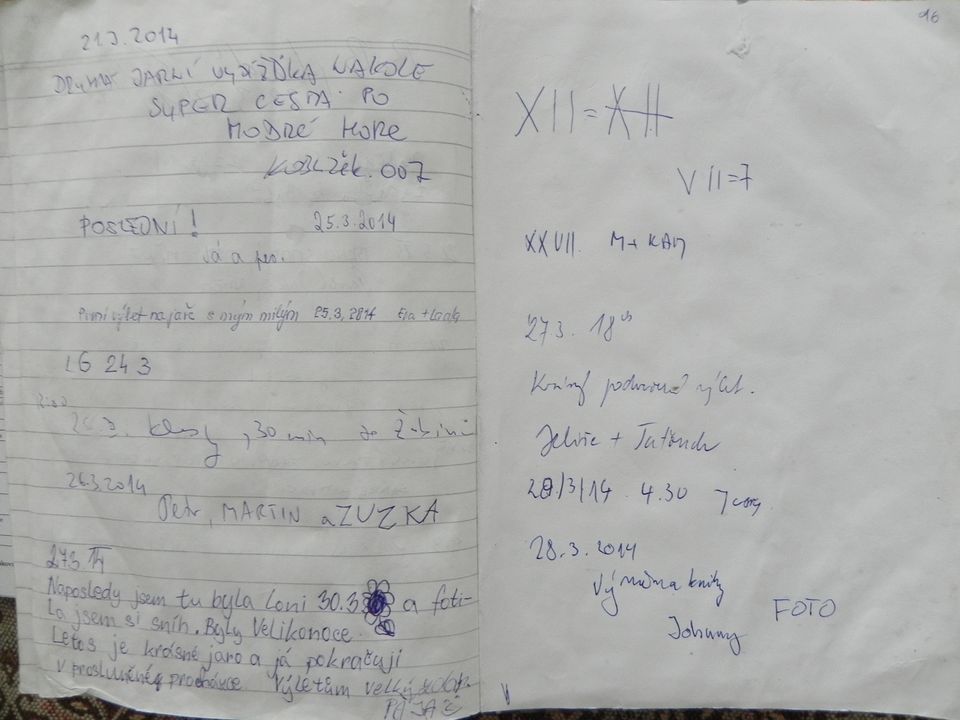 21.3.2014
DRUHÁ JARNÍ VYJÍŽĎKA NA KOLE
SUPER CESTA PO
MODRÉ HOŘE
007
POSLEDNÍ!
25.3.2014
Já a pes.
První výlet na jaře s mým milým 25.3.2014 Eva + Láďa
LG 243
30 min ze Žabin
26.3.2014
Petr, MARTIN a ZUZKA
27.3.14
Naposledy jsem tu byla loni 30.3. a foti-
la jsem si sníh. Byly Velikonoce.
Letos je krásné jaro a já pokračuji
v prosluněné procházce. Výletům velký
16
XII = XII
VII=7
XXVII. M+KAM
27.3. 18
Krásný výlet.
28/3/14 4.30
28.3.2014
Výměna knihy
FOTO
Johnny